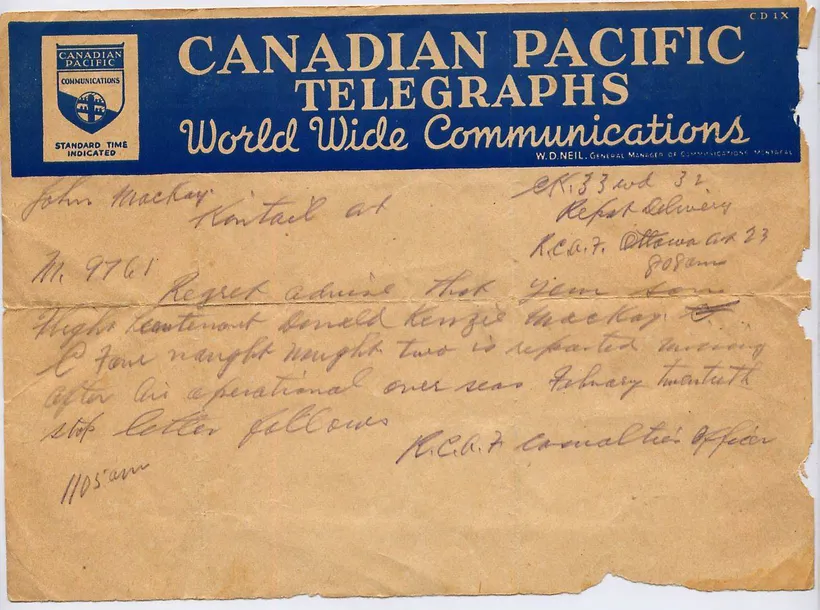 CD 1X
CANADIAN PACIFIC
TELEGRAPHS
World Wide Communications
W.D. NEIL, GENERAL MANAGER OF COMMUNICATIONS, MONTREAL
CANADIAN
PACIFIC
COMMUNICATIONS
STANDARD TIME
INDICATED
John MacKay
Kintail Ont
CK. 33 wd 32
Repst Delivery
R.C.A.F. Ottawa Ont 23
808am
M. 9761
Regret advise that your son
Flight Lieutenant Donald Kenzie MacKay
C Four naught naught two is reported missing
after air operational over seas February twentieth
stop letter follows
R.C.A.F casualties Officer
1105am